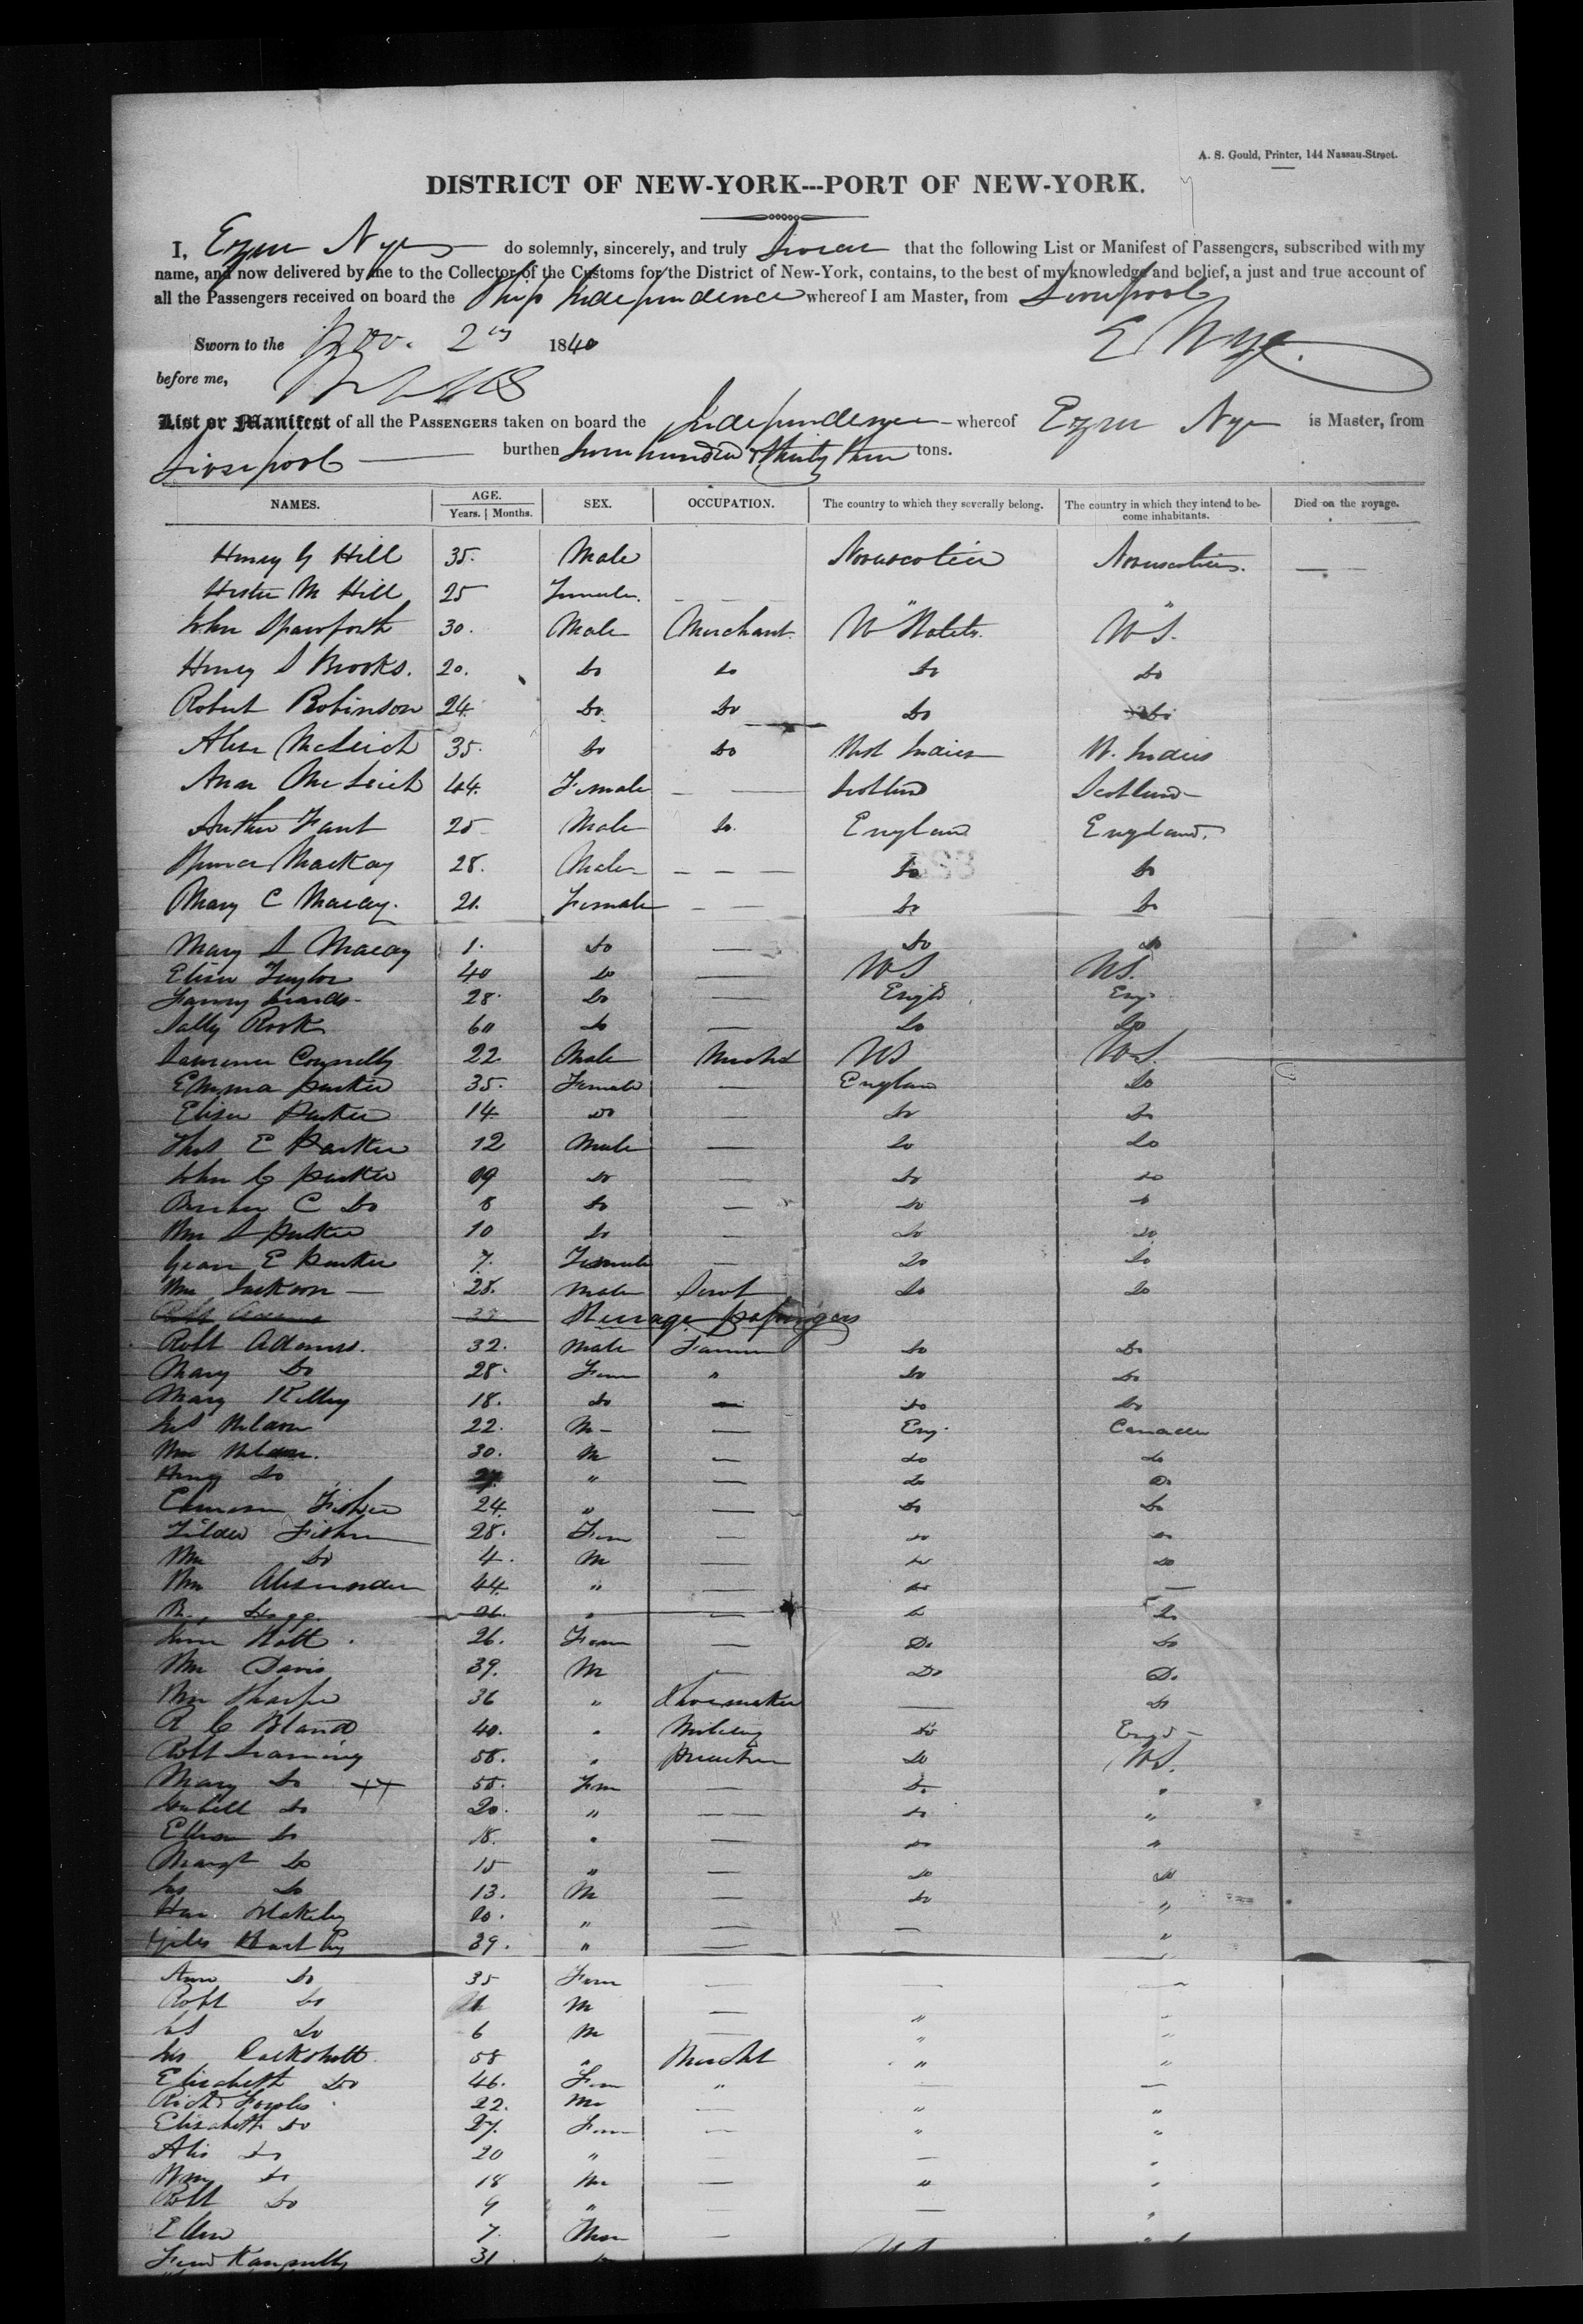 A. S. Gould, Printer, 144 Nassau-Street.
DISTRICT OF NEW-YORK---PORT OF NEW-YORK.
I, Ezra Nye do solemnly, sincerely, and truly Swear that the following List or Manifest of Passengers, subscribed with my
name, and now delivered by me to the Collector of the Customs for the District of New-York, contains, to the best of my knowledge and belief, a just and true account of
all the Passengers received on board the Ship Independence whereof I am Master, from Liverpool
Sworn to the Nov. 2 1840 E Nye.
before me,
List or Manifest of all the PASSENGERS taken on board the Independence whereof Ezra Nye is Master, from
Liverpool burthen Seven hundred & thirty three tons.
NAMES. AGE. Years. | Months. SEX. OCCUPATION. The country to which they severally belong. The country in which they intend to become inhabitants. Died on the voyage.
Henry G Hill 35. Male Novascotia Novascotia
Hester M Hill 25 Female " "
John Spawforth 30. Male Merchant U States. U S.
Henry S Brooks. 20. Do Do Do Do
Robert Robinson 24. Do Do Do Do
35. Do Do West Indies W. Indies
Ann 44. Female Scotland Scotland
Arthur 25 Male Do England England.
Mackay 28. Male Do Do
Mary C Macay. 21. Female Do Do
Mary S Macay 1. Do Do Do
Eliza Taylor 40 Do US US.
Fanny 28. Do Engd Eng
Sally Rook 60 Do Do Do
Lawrence Connelly 22 Male Mercht US U.S.
Emma Parker 35. Female England Do
Eliza Parker 14 Do Do Do
Thos E Parker 12 Male Do Do
John G Parker 09 Do Do Do
C Do 8 Do Do Do
Wm S Parker 10 Do Do Do
E Parker 7. Female Do Do
Wm Jackson 28. Male Servt Do Do
Robt Adams 32 Steerage passengers
Robt Adams. 32. Male Farmer Do Do
Mary Do 28. Fem " Do Do
Mary Kelley 18. Do Do Do
22. M Eng. Canada
Wm 30. M Do Do
Henry Do " Do Do
Cameron Fisher 24. " Do Do
Tilda Fisher 28. Fem Do Do
Wm Do 4. M Do Do
Wm Alexander 44 " Do
Hogg. 26. " Do Do
26. Fem Do Do
Wm Davis 39. M Do Do
Wm Sharpe 36 " Shoemaker Do
R G Bland 40. " Military Do Engd
Robt 58. " Preacher Do US.
Mary Do 55. Fem Do "
Isabell Do 20. " Do "
Ellen Do 18. " Do "
Margt Do 15 " Do Do
Jas Do 13. M Do "
Blakeley 20. " "
Giles Hartley 39. " "
Ann Do 35 Fem
Robt Do M "
Do 6 M " "
Jas 58 " Mercht " "
Elizabeth Do 46. Fem "
Richd 22. M " "
Elizabeth Do 27. Fem " "
Do 20 " "
Wm Do 18 M " "
Robt Do 9 " "
Ellen 7.
31